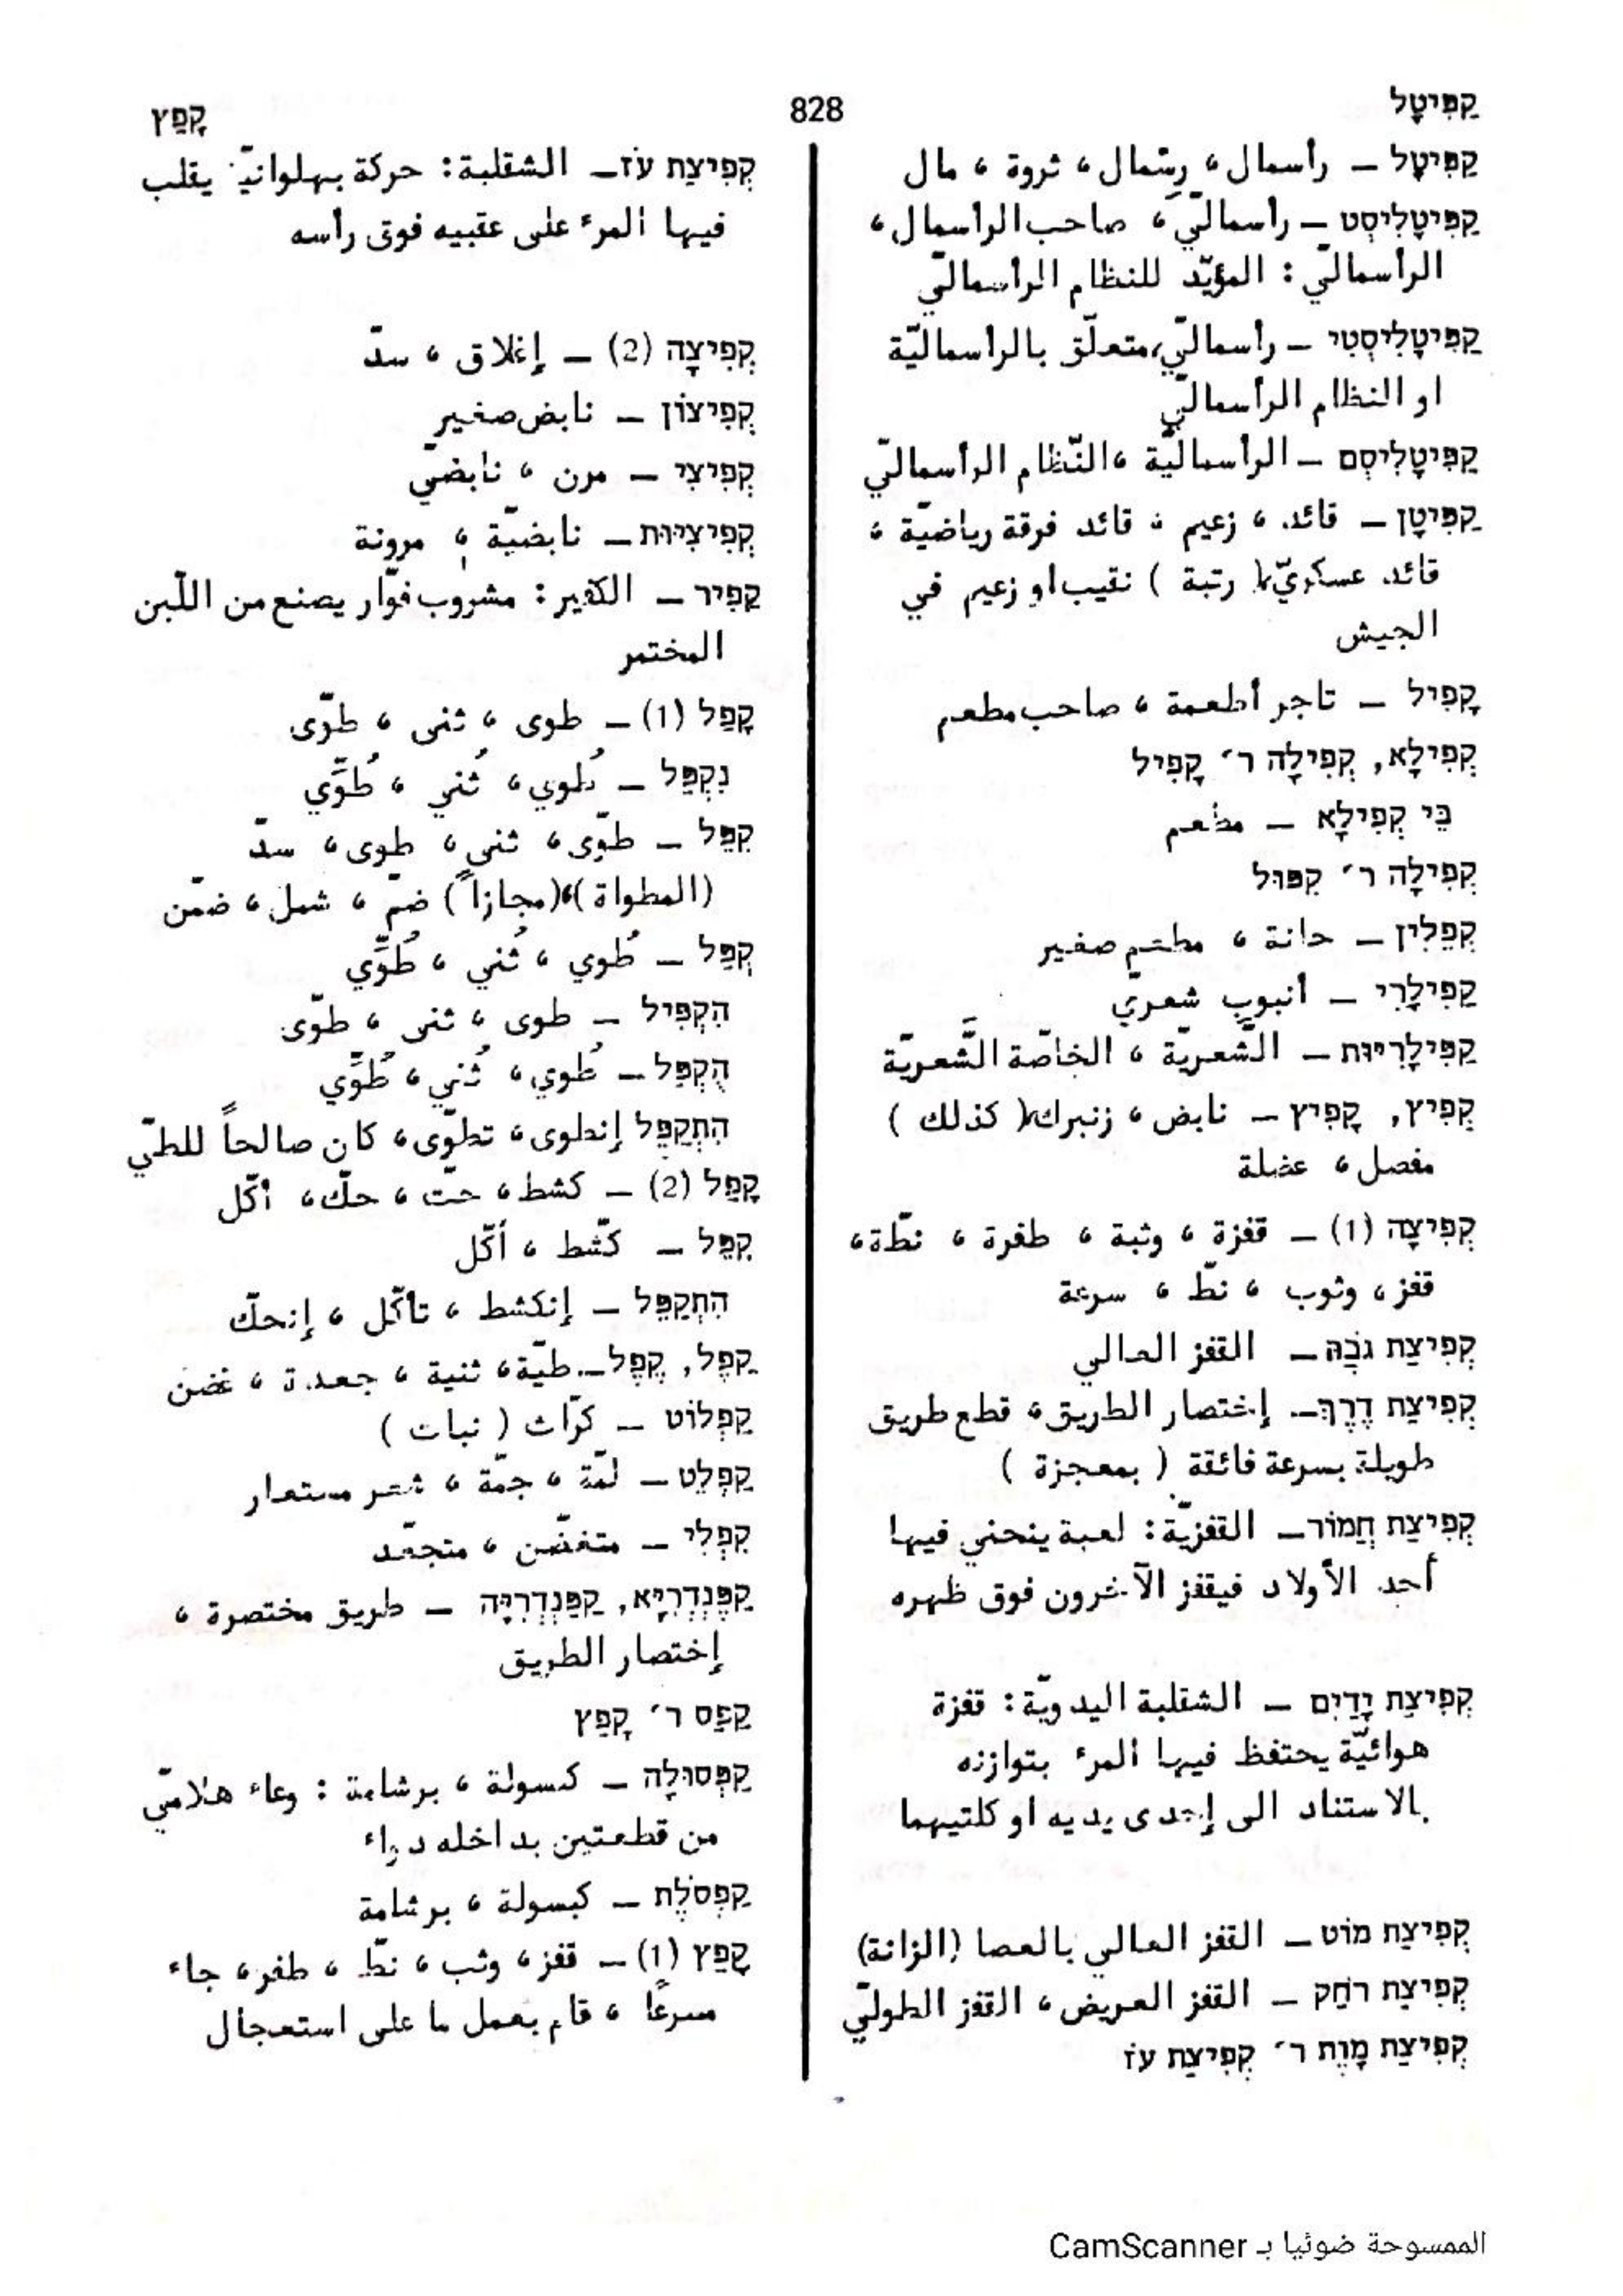 קַפִּיטָל
828
קָפַץ
קַפִּיטָל – رأسمال، رِسَمال، ثروة، مال
קַפִּיטָלִיסְט – رأسماليّ، صاحب الرأسمال،
الرأسماليّ : المؤيّد للنظام الرأسماليّ
קַפִּיטָלִיסְטִי – رأسماليّ، متعلّق بالرأسماليّة
او النظام الرأسماليّ
קַפִּיטָלִיסְם – الرأسماليّة، النّظام الرأسماليّ
קַפִּיטָן – قائد، زعيم، قائد فرقة رياضيّة،
قائد عسكريّ (رتبة) نقيب او زعيم في
الجيش
קָפִיל – تاجر أطعمة، صاحب مطعم
קְפִילָא, קְפִילָה ר׳ קָפִיל
בֵּי קְפִילָא – مطعم
קְפִילָה ר׳ קִפּוּל
קְפֵלִין – حانة، مطعم صغير
קַפִּילָרִי – أنبوب شعريّ
קַפִּילָרִיּוּת – الشَّعريّة، الخاصّة الشَّعريّة
קְפִיץ, קָפִיץ – نابض، زنبرك (كذلك)
مفصل، عضلة
קְפִיצָה (1) – قفزة، وثبة، طفرة، نطّة،
قفز، وثوب، نطّ، سرعة
קְפִיצַת גֹּבַהּ – القفز العالي
קְפִיצַת דֶּרֶךְ – إختصار الطريق، قطع طريق
طويلة بسرعة فائقة (بمعجزة)
קְפִיצַת חֲמוֹר – القفزيّة : لعبة ينحني فيها
أحد الأولاد فيقفز الآخرون فوق ظهره
קְפִיצַת יָדַיִם – الشقلبة اليدويّة : قفزة
هوائيّة يحتفظ فيها المرء بتوازنه
بالاستناد الى إحدى يديه او كلتيهما
קְפִיצַת מוֹט – القفز العالي بالعصا (الزانة)
קְפִיצַת רֹחַק – القفز العريض، القفز الطوليّ
קְפִיצַת מָוֶת ר׳ קְפִיצַת עֹז
קְפִיצַת עֹז – الشقلبة : حركة بهلوانيّة يقلب
فيها المرء على عقبيه فوق رأسه
קְפִיצָה (2) – إغلاق، سدّ
קְפִיצוֹן – نابض صغير
קְפִיצִי – مرن، نابضيّ
קְפִיצִיּוּת – نابضيّة، مرونة
קֶפִיר – الكفير : مشروب فوّار يصنع من اللّبن
المختمر
קָפַל (1) – طوى، ثنى، طوّى
נִקְפַּל – طُوي، ثُني، طُوِّي
קִפֵּל – طوّى، ثنى، طوى، سدّ
(المطواة)، (مجازاً) ضمّ، شمل، ضمّن
קֻפַּל – طُوي، ثُني، طُوِّي
הִקְפִּיל – طوى، ثنى، طوّى
הֻקְפַּל – طُوي، ثُني، طُوِّي
הִתְקַפֵּל إنطوى، تطوّى، كان صالحاً للطيّ
קָפַל (2) – كشط، حتّ، حكّ، أكّل
קִפֵּל – كشّط، أكّل
הִתְקַפֵּל – إنكشط، تأكّل، إنحكّ
קֵפֶל, קֶפֶל – طيّة، ثنية، جعدة، غضن
קַפְלוֹט – كرّاث (نبات)
קַפְלֵט – لمّة، جمّة، شعر مستعار
קִפְלִי – متغضّن، متجعّد
קַפֶּנְדְרִיָא, קַפַּנְדְרִיָּה – طريق مختصرة،
إختصار الطريق
קַפַּס ר׳ קָפַץ
קַפְּסוּלָה – كبسولة، برشامة : وعاء هلاميّ
من قطعتين بداخله دواء
קַפְּסֹלֶת – كبسولة، برشامة
קָפַץ (1) – قفز، وثب، نطّ، طفر، جاء
مسرعًا، قام بعمل ما على استعجال
الممسوحة ضوئيا بـ CamScanner